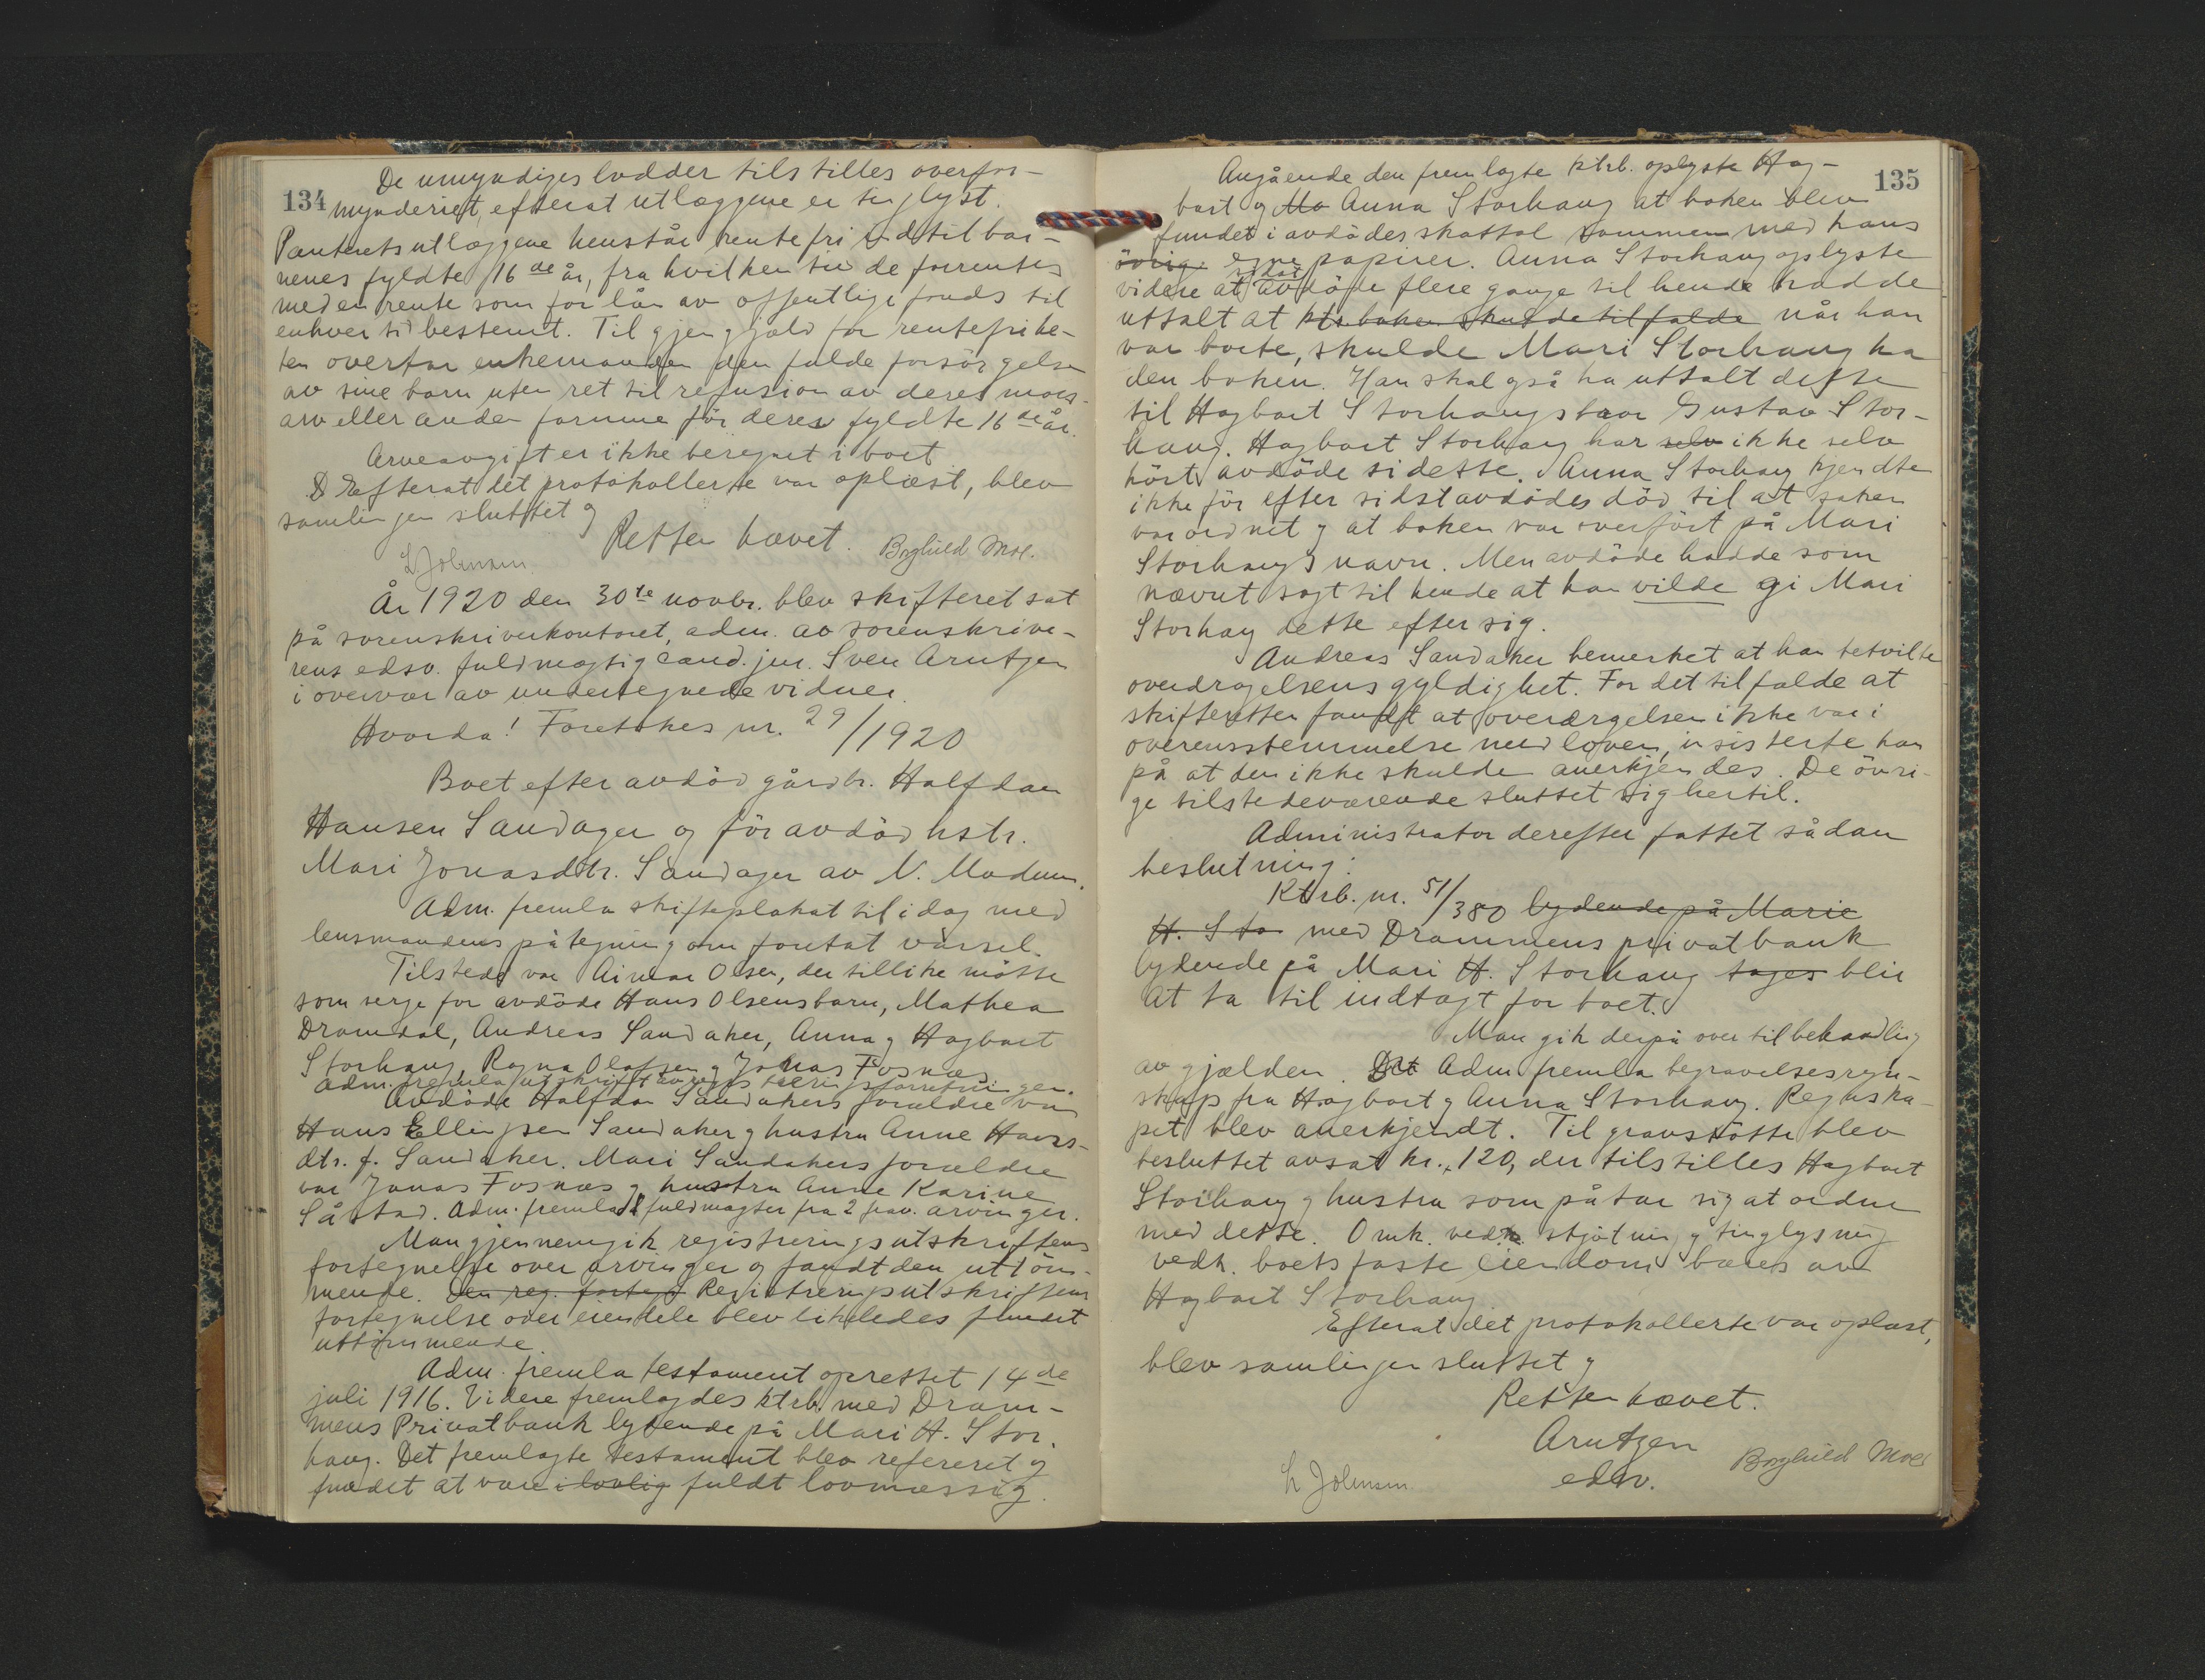 134
De umyndiges lodder tilstilles overfor-
mynderiet, efterat utlæggene er tinglyst.
Panteretsutlæggene henstår rentefri indtil bar-
nenes fyldte 16de år, fra hvilken tid de forrentes
med en rente som for lån av offentlige fonds til
enhver tid bestemt. Til gjengjæld for rentefrihe-
ten overtar enkemanden den fulde forsörgelse
av sine barn uten ret til refusion av deres mors-
arv eller anden formue för deres fyldte 16de år.
Arveavgift er ikke beregnet i boet
Efterat det protokollerte var oplæst, blev
samlingen sluttet og
Retten hævet.
L Johnsen. Borghild Moe.
År 1920 den 30te novbr. blev skifteret sat
på sorenskriverkontoret, adm. av sorenskrive-
rens edsv. fuldmægtig cand. jur. Sven Arntzen
i overvær av undertegnede vidner.
Hvorda! Foretokes nr. 29/1920
Boet efter avdöd gårdbr. Halfdan
Hansen Sandager og för avdöd hstr.
Mari Jonasdtr. Sandager av N. Modum.
Adm. fremla skifteplakat til idag med
lensmandens påtegning om foretat varsel.
Tilstede var Aimar Olsen, der tillike mötte
som verge for avdöde Hans Olsens barn, Mathea
Dramdal, Andreas Sandaker, Anna og Hagbart
Storhaug, Ragna Olafsen og Jonas Fosnæs.
Adm. fremla utskrift av registreringsforretningen.
Avdöde Halfdan Sandakers forældre var
Hans Ellingsen Sandaker og hustru Anne Hans-
dtr. f. Sandaker. Mari Sandakers forældre
var Jonas Fosnæs og hustru Anne Karine
Såstad. Adm. fremla 2 fuldmagter fra 2 frav. arvinger.
Man gjennemgik registreringsutskriftens
fortegnelse over arvinger og fandt den uttöm-
mende. Den reg. forteg Registreringsutskriftens
fortegnelse over eiendele blev likeledes fundet
uttömmende.
Adm. fremla testament oprettet 14de
juli 1916. Videre fremlagdes ktrb. med Dram-
mens Privatbank lydende på Mari H. Stor-
haug. Det fremlagte testament blev refereret og
fundet at være i lovlig fuldt lovmæssig.
135
Angående den fremlagte ktrb. oplyste Hag-
bart og Ma Anna Storhaug at boken blev
fundet i avdödes skattol sammen med hans
övrige egne papirer. Anna Storhaug oplyste
videre at sidst avdöde flere gange til hende hadde
uttalt at ktr.boken skulde tilfalde når han
var borte, skulde Mari Storhaug ha
den boken. Han skal også ha uttalt dette
til Hagbart Storhaugs bror Gustav Stor-
haug. Hagbart Storhaug har selv ikke selv
hört avdöde si dette. Anna Storhaug kjendte
ikke för efter sidstavdödes död til at saken
var ordnet og at boken var overfört på Mari
Storhaugs navn. Men avdöde hadde som
nævnt sagt til hende at han vilde gi Mari
Storhaug dette efter sig.
Andreas Sandaker bemerket at han betvilte
overdragelsens gyldighet. For det tilfælde at
skifteretten fandt at overdragelsen ikke var i
overensstemmelse med loven, insisterte han
på at den ikke skulde anerkjendes. De övri-
ge tilstedeværende sluttet sig hertil.
Administrator derefter fattet sådan
beslutning:
Ktrb. nr. 51/380 lydende på Marie
H. Sto med Drammens privatbank
lydende på Mari H. Storhaug tages blir
at ta til indtægt for boet.
Man gik derpå over til behandling
av gjælden. Det Adm. fremla begravelsesregn-
skap fra Hagbart og Anna Storhaug. Regnska-
pet blev anerkjendt. Til gravstötte blev
besluttet avsat kr. 120, der tilstilles Hagbart
Storhaug og hustru som påtar sig at ordne
med dette. Omk. ved skjötning og tinglysning
vedk. boets faste eiendom bæres av
Hagbart Storhaug.
Efterat det protokollerte var oplæst,
blev samlingen sluttet og
Retten hævet.
Arntzen
edsv.
L Johnsen. Borghild Moe